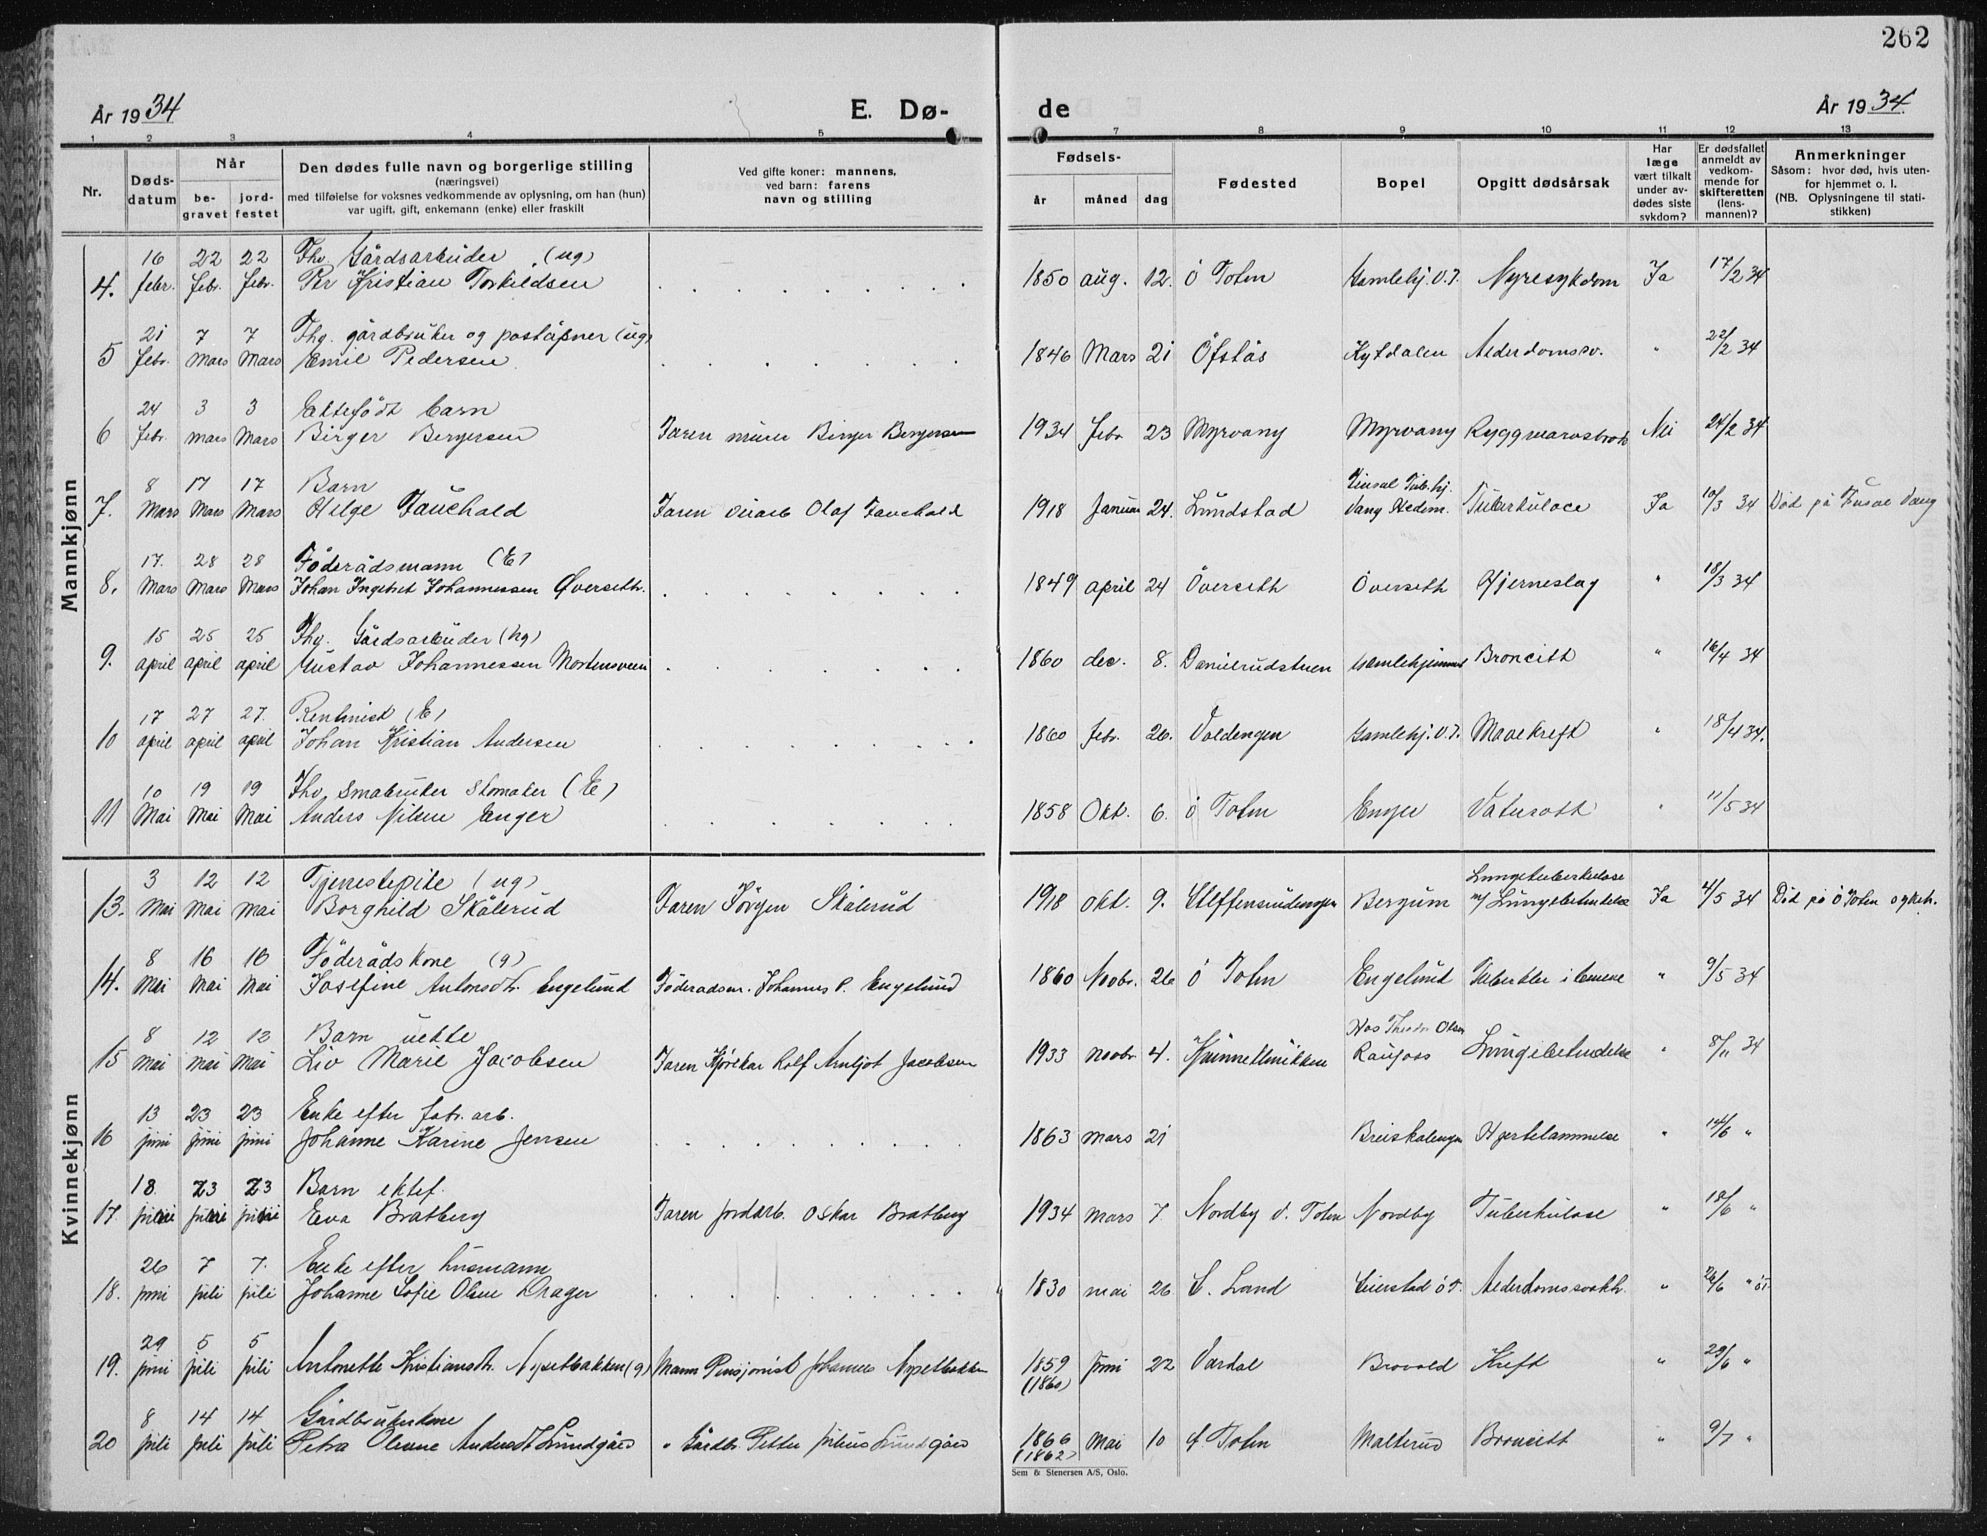 262
År 1934
E. Dø-
de
År 1934.
1 2 3 4 5 7 8 9 10 11 12 13
Nr.
Døds-
datum
Når
be-
gravet
jord-
festet
Den dødes fulle navn og borgerlige stilling
(næringsvei)
med tilføielse for voksnes vedkommende av oplysning, om han (hun)
var ugift, gift, enkemann (enke) eller fraskilt
Ved gifte koner: mannens,
ved barn: farens
navn og stilling
Fødsels-
år måned dag
Fødested
Bopel
Opgitt dødsårsak
Har
læge
vært tilkalt
under av-
dødes siste
sykdom?
Er dødsfallet
anmeldt av
vedkom-
mende for
skifteretten
(lens-
mannen)?
Anmerkninger
Såsom: hvor død, hvis uten-
for hjemmet o. l.
(NB. Oplysningene til stati-
stikken)
Mannkjønn
16 22 22 Fhv. Gårdsarbeider (ug)
4. febr. febr. febr. Per Kristian Torkildsen 1850 aug. 12. Ö Toten Gamlehj. V.T. Nyresykdom Ja 17/2 34
21 7 7 Fhv. gårdbruker og poståpner (ug)
5 febr. Mars Mars Emil Pedersen 1846 Mars 21 Öfstås Alderdomssv. " 22/2 34
24 3 3 Ektefödt barn
6 febr. mars Mars Birger Bergersen Faren murer Birger Bergersen 1934 febr 23 Myrvang Myrvang Ryggmarvsbrok Nei 24/2 34
8 17 17 Barn
7. Mars Mars Mars Helge Fauchald Faren Olaf Fauchald 1918 Januar 24. Lundstad Vang Hedm. Tuberkulose Ja 10/3 34 Död på Vang
17. 28 28 Föderådsmann (E)
8. Mars Mars Mars Johan Ingebret Johannessen Øverseth. 1849 april 24 Överseth Överseth Hjerneslag " 18/3 34
15 25 25 Fhv. Gårdsarbeider (ug)
9. april april april Gustav Johannessen Mortensveen 1860 dec. 8. Danielrudstuen Gamlehjemmet Broncitt " 16/4 34
17 27 27. Rentenist (E)
10 april april april Johan Kristian Andersen 1860 febr. 26. Voldengen Gamlehj. V.T. Mavekreft " 18/4 34.
10 19 19 Fhv. Småbruker Skomaker (E)
11 Mai Mai Mai Anders Nilsen Enger 1858 Okt. 6. Ö Toten Enger Vatersott " 11/5 34
Kvinnekjønn
3 12 12 Tjenestepike (ug) Lungetuberkulose
13. Mai Mai Mai Borghild Skålerud Faren Jörgen Skålerud 1918 okt. 9. Bergum m/ Lungebetendelse Ja 4/5 34 Död på Ö Toten sykeh.
8 16 16 Föderådskone (g)
14. Mai Mai Mai Josefine Antonsdtr. Engelund Föderadsm. Johannes P. Engelund 1860 Novbr. 26 Ö Toten Engelund Tuberkler i lungene " 9/5 34
8 12 12 Barn uekte Hos Theodor Olsen
15 mai mai mai Liv Marie Jacobsen Faren Kjörekar Rolf Arnljot Jacobsen 1933 novbr 4. Raufoss Lungebetendelse " 8/11 34
13 23 23 Enke efter fabr. arb.
16 juni juni juni Johanne Karine Jensen 1863 mars 21 Breiskalengen Hjertelammelse " 14/6 "
18. 23 23 Barn ektef.
17 juni juni juni Eva Bratberg Faren jordarb. Oskar Bratberg 1934 mars 7 Nordby V. Toten Nordby Tuberkulose " 18/6 "
26 7 7. Enke efter husmann
18. juni juli juli Johanne Sofie Olsen Drager 1830 mai 26. S. Land Alderdomssvakh. " 26/6 " öt
29 5 5
19. juni juli juli Antonette Kristiansdtr. Nysetbakken (g) Mann Pensjonist Johannes Nysetbakken 1859 juni 22 Vardal Brovold Kreft " 29/6 "
(1860)
8 14 14 Gårdbrukerkone
20 juli juli juli Petra Olene Andersdt Lundgård " Gårdbr. Petter Julius Lundgård 1866 Mai 10 Toten Malterud Broncitt " 9/7 "
(1862)
Sem & Stenersen A/S, Oslo.